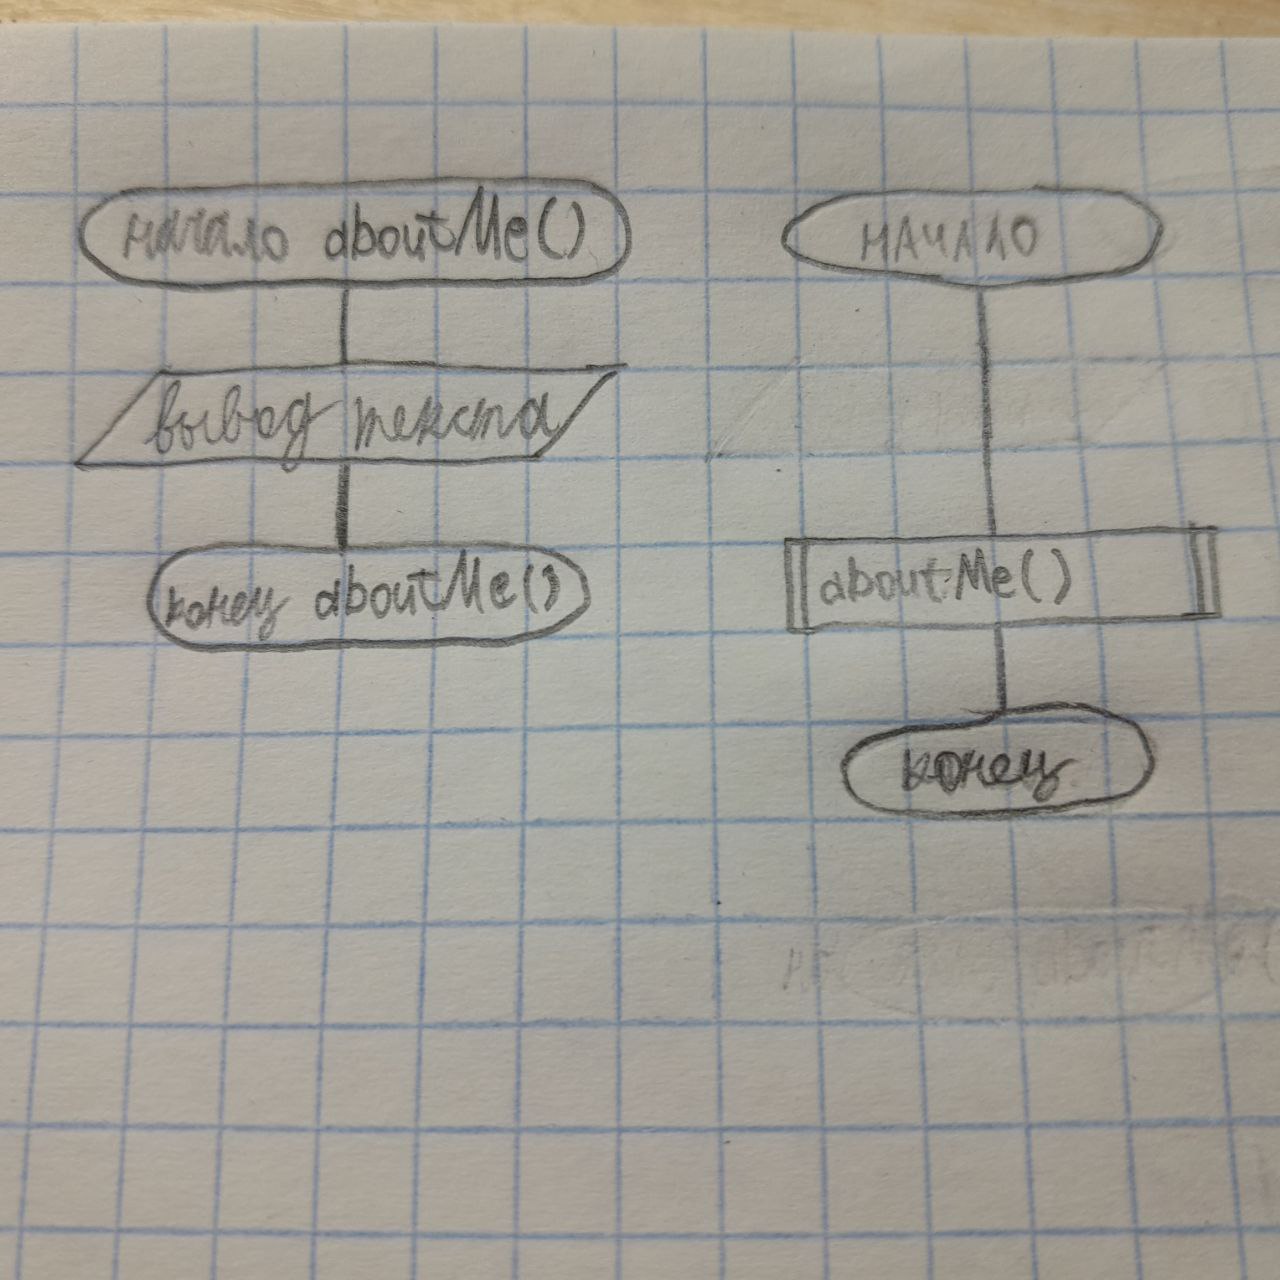 начало aboutMe()
вывод текста
конец aboutMe()
НАЧАЛО
aboutMe()
конец